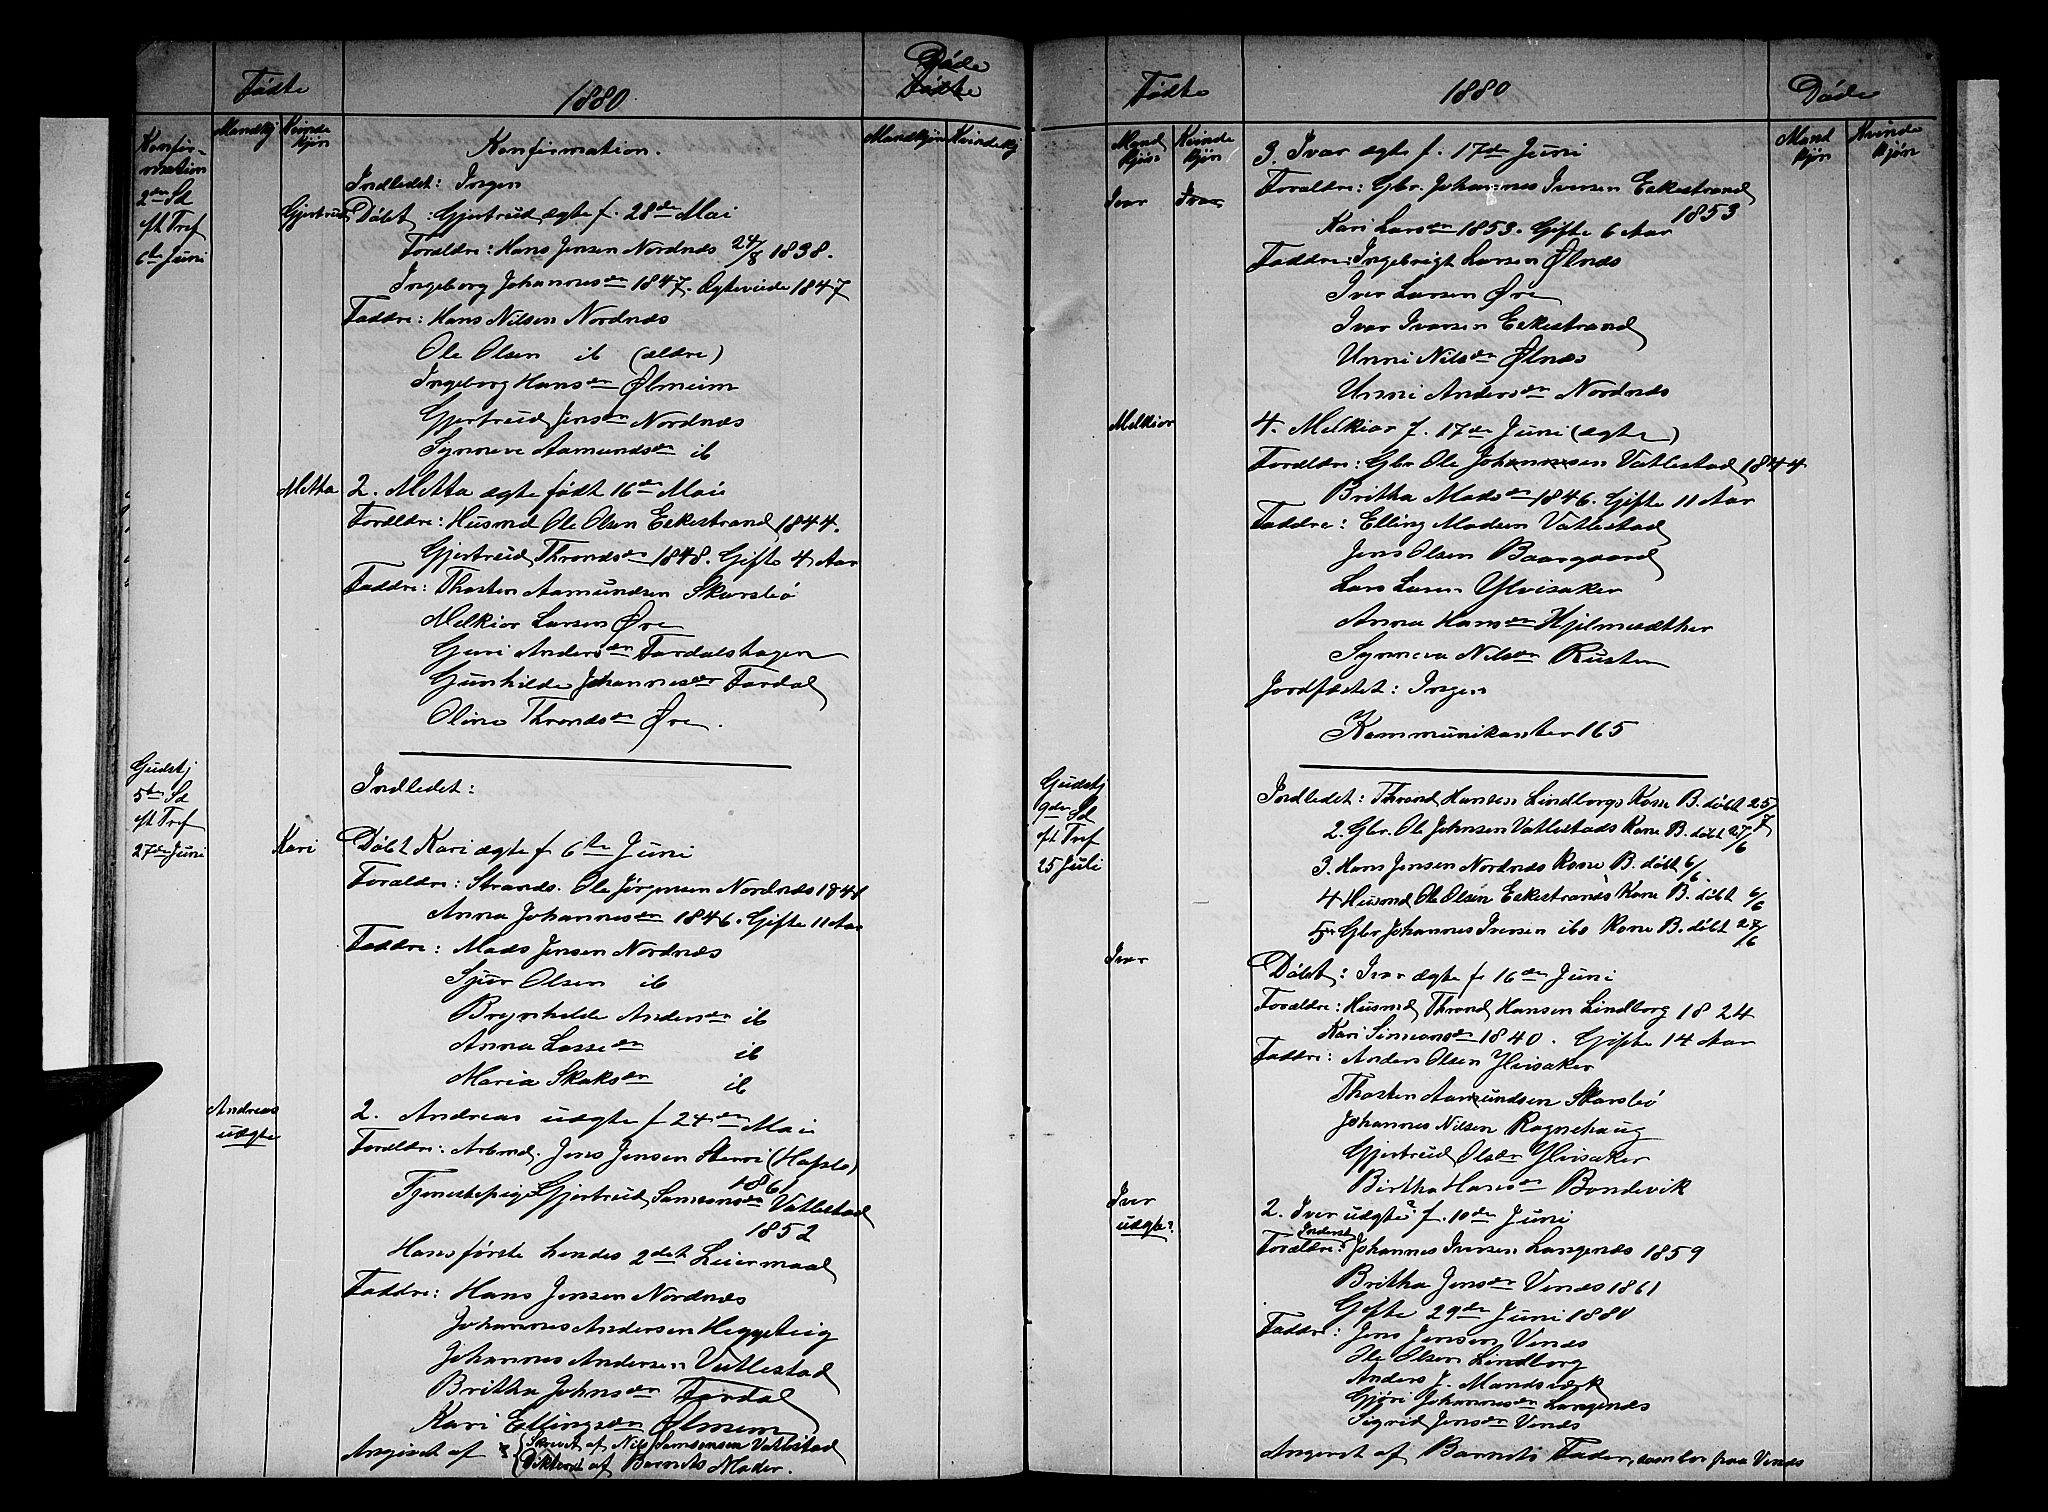 Døde
Fødte 1880 Fødte
Konfirmation Mandkj Kvindekjøn Konfirmation. Mandkjøn Kvindekj
2den Sd Indledet: Ingen
eft Tref Gjertrud Døbt: Gjertrud ægte f. 28de Mai
6te Juni Forældre: Hans Jensen Nordnæs 24/8 1838.
Ingeborg Johannesdr 1847. Ægteviede 1847
Faddre: Hans Nilsen Nordnæs
Ole Olsen ib (ældre)
Ingeborg Hansdr Ølmeim
Gjertrud Jensdr Nordnæs
Synneve Aamundsdr ib
Metta 2. Metta ægte født 16de Mai
Forældre: Husmd Ole Olsen Eekestrand 1844.
Gjertrud Throndsdr 1848. Gifte 4 Aar
Faddre: Thosten Aamundsen Skarsbø
Melkior Larsen Øre
Guri Andersdr Fardalshagen
Gunhilde Johannesdr Fardal
Oline Throndsdr Øre.
Gudstj
5te Sd Indledet:
eft Tref
27de Juni Kari Døbt Kari ægte f 6te Juni
Forældre: Strands. Ole Jørgensen Nordnæs 1848
Anna Johannesdr 1846. Gifte 11 Aar
Faddre: Mads Jensen Nordnæs
Sjur Olsen ib
Brynhilde Andersdr ib
Anna Lassedr ib
Maria Skaksdr ib
Andreas 2. Andreas uægte f 24de Mai
uægte Forældre: Arbmd. Jens Jensen (Hafslo)
1861
Tjenestepige Gjertrud Samsonsdr Vatlestad
1852
Hans første hendes 2det Leiermaal
Faddre: Hans Jensen Nordnæs
Johannes Andersen Heggeteig
Johannes Andersen Vatlestad
Britha Johnsdr Fardal
Kari Ellingsdr Ølmeim
Angivet af Skrevet af Nils Samsonsen Vatlestad
Dikteret af Barnets Moder.
Fødte 1880 Døde
Mandkjøn Kvindekjøn 3. Ivar ægte f. 17de Juni Mandkjøn Kvindekjøn
Ivar Ivar Forældre: Gbr. Johannes Iversen Eekestrand
1853
Kari Larsdr 1853. Gifte 6 Aar
Faddre: Ingebrigt Larsen Ølnæs
Iver Larsen Øre
Ivar Ivarsen Eekestrand
Unni Nilsdr Ølnæs
Unni Andersdr Nordnæs
Melkior 4. Melkior f. 17de Juni (ægte)
Forældre: Gbr Ole Johannesen Vatlestad 1844
Britha Madsdr 1846. Gifte 11 Aar
Faddre: Elling Madsen Vatlestad
Jens Olsen Baargaard
Lars Larsen Ylvisaker
Anna Hansdr Hjelmesæther
Synneva Nilsdr Rusten
Jordfæstet: Ingen
Kommunikanter 165
Gudstj Indledet: Thrond Hansen Lindborgs Kone B. døbt 25/7
9de Sd 2. Gbr. Ole Johnsen Vatlestads Kone B. døbt 27/6
eft Tref 3. Hans Jensen Nordnæs Kone B. døbt 6/6.
25 Juli 4 Husmd Ole Olsen Eekestrands Kone B. døbt 6/6
5 Gbr Johannes Iversen ibs Kone B. døbt 27/6
Ivar Døbt: Ivar ægte f. 16de Juni
Forældre: Husmd Thrond Hansen Lindborg 1824
Kari Simonsdr 1840. Gifte 14 Aar
Faddre: Anders Olsen Ylvisaker
Thosten Aamundsen Skarsbø
Johannes Nilsen Ragnehaug
Gjertrud Olsdr Ylvisaker
Birtha Hansdr Bondevik
Iver 2. Iver uægte? f. 10de Juni
uægte? Inderst
Forældre: Johannes Iversen Langenæs 1859
Britha Jensdr Venæs 1861
Gifte 29de Juni 1880
Faddre: Jens Jensen Venæs
Ole Olsen Lindborg
Anders J. Mandsværk
Gjøri Johannesdr Langenæs
Sigrid Jensdr Venæs
Angivet af Barnets Fader, som bor paa Venæs